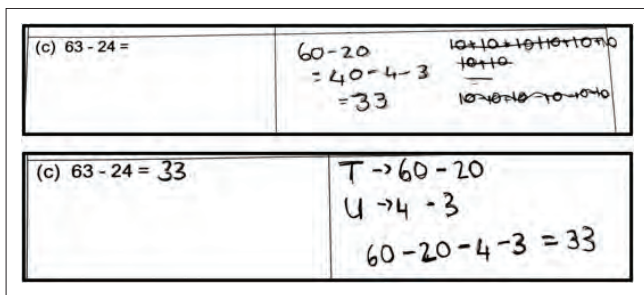 (c) 63 - 24 =
60-20
= 40-4-3
= 33
10+10+10+10+10+10
10+10
10-10-10-10-10-10
(c) 63 - 24 = 33
T → 60 - 20
U → 4 - 3
60 - 20 - 4 - 3 = 33